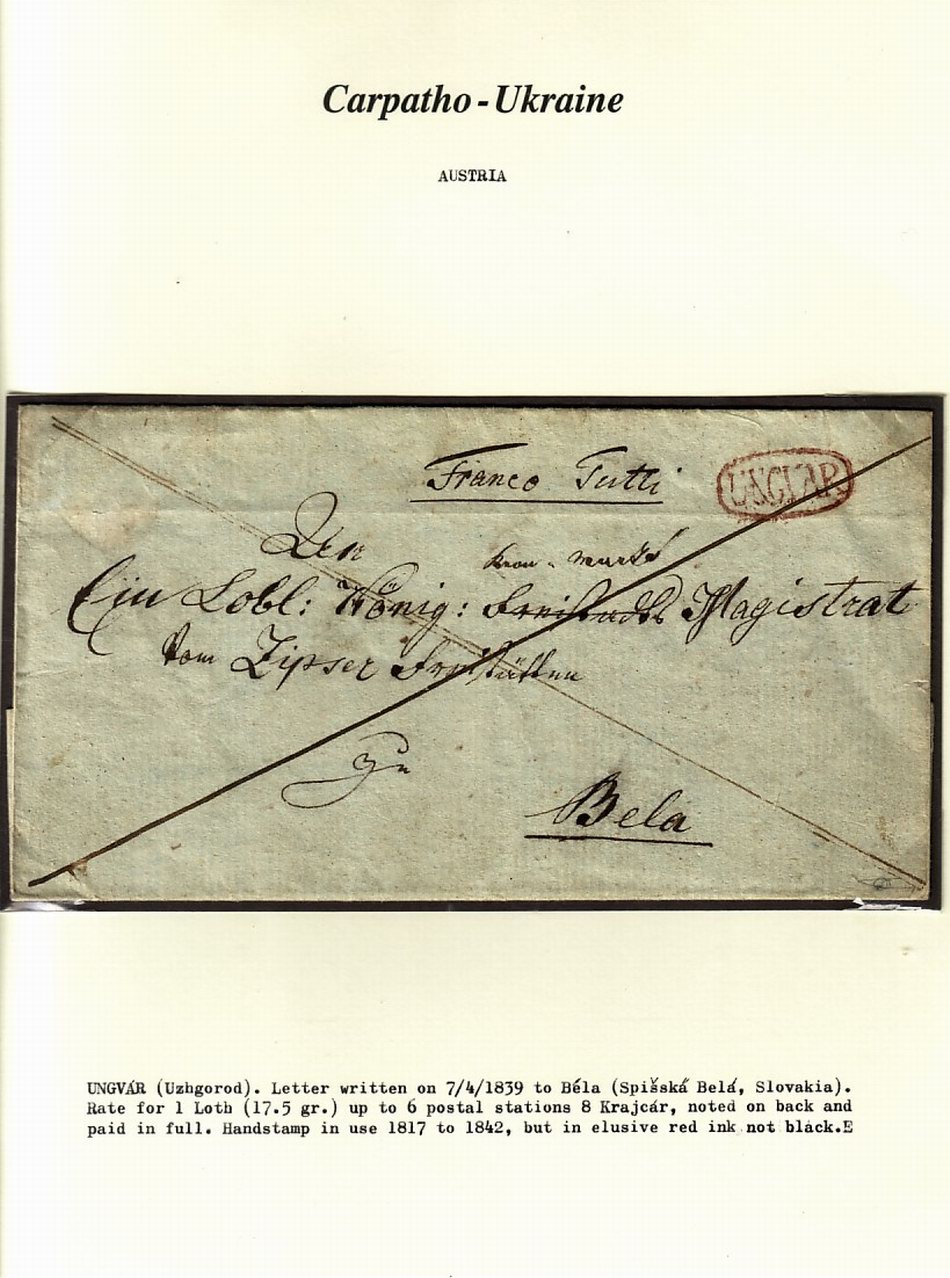 Carpatho-Ukraine
AUSTRIA
Franco Tutti
UNGVAR
Den
Kron - markt
Ein Lobl: König: Freistadts Magistrat
Vom Zipser Freistätten
Zu
Bela
UNGVÁR (Uzhgorod). Letter written on 7/4/1839 to Béla (Spišská Belá, Slovakia).
Rate for 1 Loth (17.5 gr.) up to 6 postal stations 8 Krajcár, noted on back and
paid in full. Handstamp in use 1817 to 1842, but in elusive red ink not black.E